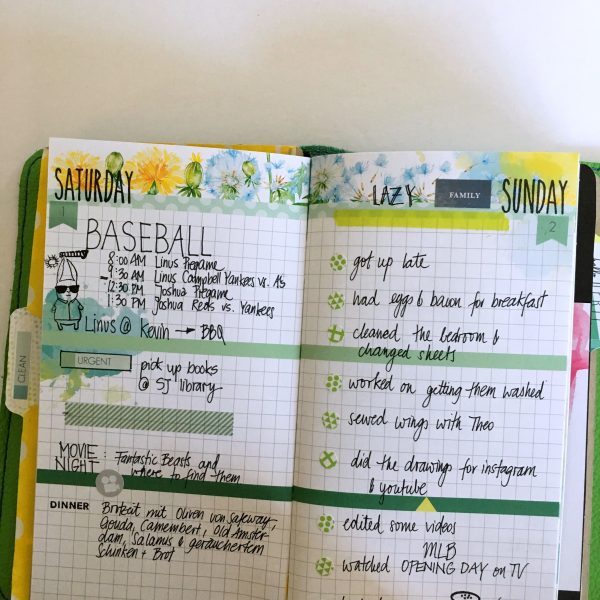 SATURDAY
1
BASEBALL
8:00 AM Linus Pregame
9:30 AM Linus Campbell Yankees vs. A's
12:30 PM Joshua Pregame
1:30 PM Joshua Reds vs. Yankees
Linus @ Kevin → BBQ
CLEAN
URGENT
pick up books
@ SJ library
MOVIE NIGHT : Fantastic Beasts and
where to find them
DINNER
Brotzeit mit Oliven von Safeway,
Gouda, Camembert, Old Amster-
dam, Salamis & geräuchertem
Schinken + Brot
LAZY
FAMILY
SUNDAY
2
got up late
had eggs & bacon for breakfast
cleaned the bedroom &
changed sheets
worked on getting them washed
sewed wings with Theo
did the drawings for instagram
& youtube
edited some videos
MLB
watched OPENING DAY on TV